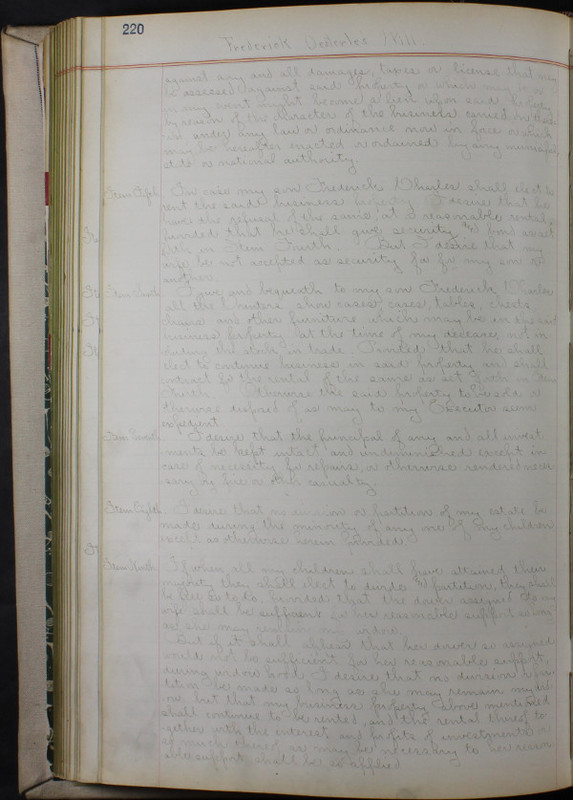 220
Frederick Will.
against any and all damages, taxes or license that may
be assessed against said property or which may be or
in any event might become a lien upon said property
by reason of the character of the business carried on there
in under any law or ordinance now in force or which
may be hereafter enacted or ordained by any municipal
state or national authority.
Item Fifth In case my son Frederick Charles shall elect to
rent the said business property I desire that he
have the refusal of the same at a reasonable rental
provided that he shall give security and bond as set
forth in Item Fourth. But I desire that my
wife be not accepted as security for my son
another
Item Sixth I give and bequeath to my son Frederick Charles
all the Counters show cases, cases, tables, chests
chairs and other furniture which may be in the said
business property at the time of my decease, not in
cluding the stock in trade, Provided that he shall
elect to continue business in said property and shall
contract for the rental of the same as set forth in Item
Fourth. Otherwise the said property to be sold or
otherwise disposed of as may to my Executor seem
expedient
Item Seventh I desire that the principal of any and all invest
ments be kept intact and undiminished except in
case of necessity for repairs, or otherwise rendered neces
sary by fire or other casualty.
Item Eighth I desire that no division or partition of my estate be
made during the minority of any one of my children
except as otherwise herein provided.
Item Ninth If when all my children shall have attained their
majority they shall elect to divide or partition, they shall
be free so to do, provided that the dower assigned to my
wife shall be sufficient for her reasonable support so long
as she may remain my widow.
But if it shall appear that her dower so assigned
would not be sufficient for her reasonable support,
during widow hood, I desire that no division or par
tition be made so long as she may remain my wid
ow, but that my business property above mentioned
shall continue to be rented, and the rental thereof to
gether with the interest and profits of investments or
so much thereof as may be necessary to her reason
able support shall be so applied